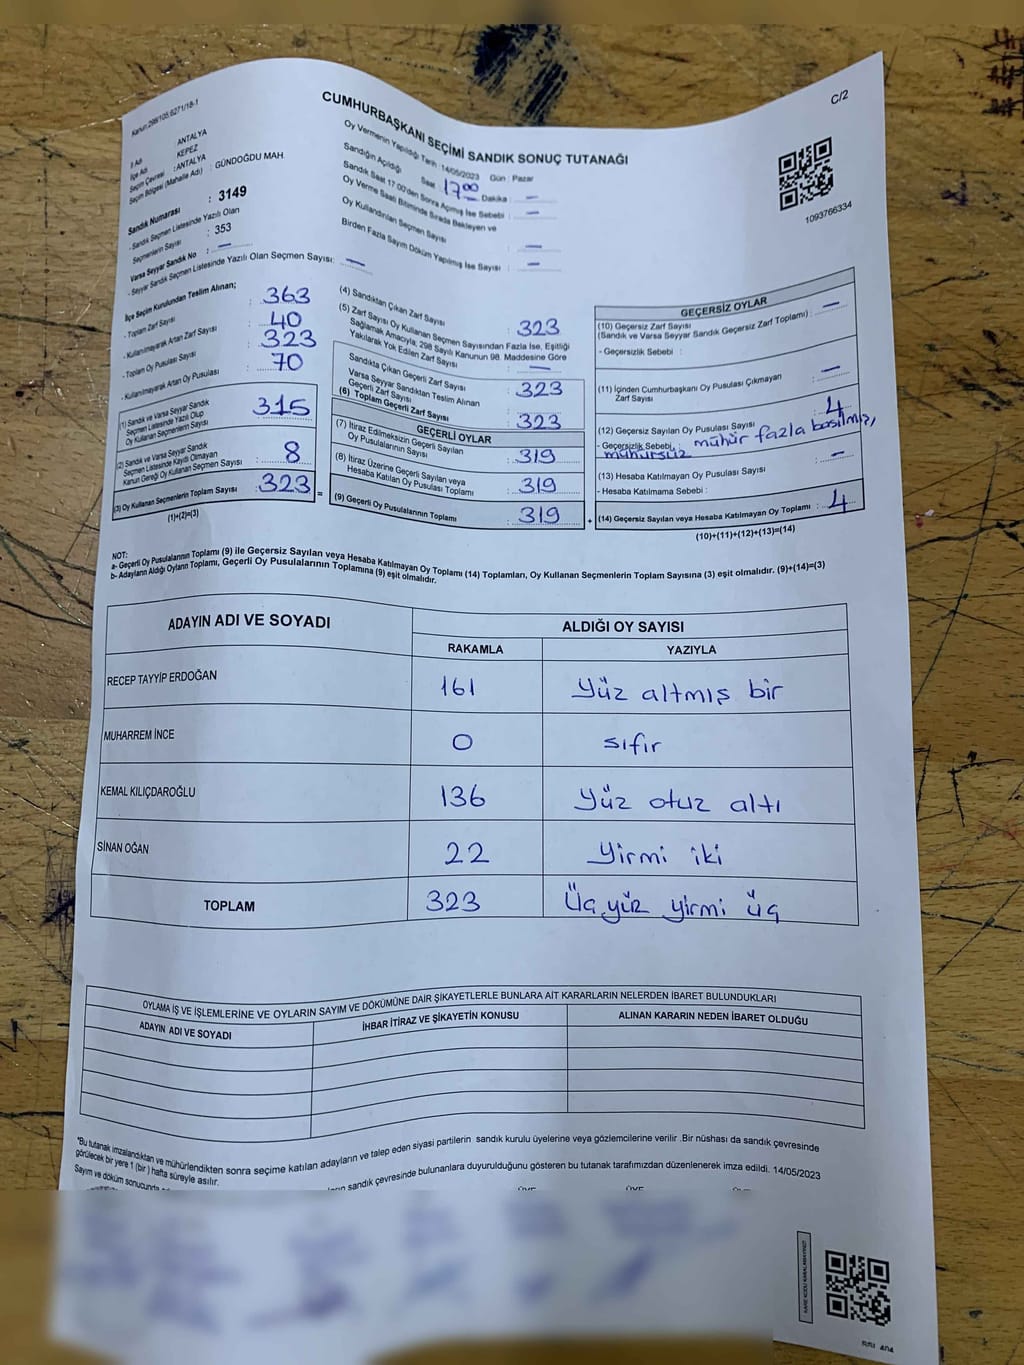 Kanun:298/105;6271/18-1
C/2
CUMHURBAŞKANI SEÇİMİ SANDIK SONUÇ TUTANAĞI
İl Adı : ANTALYA
İlçe Adı : KEPEZ
Seçim Çevresi : ANTALYA
Seçim Bölgesi (Mahalle Adı) : GÜNDOĞDU MAH
Sandık Numarası : 3149
- Sandık Seçmen Listesinde Yazılı Olan
Seçmenlerin Sayısı : 353
Varsa Seyyar Sandık No : —
- Seyyar Sandık Seçmen Listesinde Yazılı Olan Seçmen Sayısı: —
Oy Vermenin Yapıldığı Tarih : 14/05/2023 Gün : Pazar
Sandığın Açıldığı Saat : 17.00 Dakika : —
Sandık Saat 17:00'den Sonra Açılmış İse Sebebi : —
Oy Verme Saati Bitiminde Sırada Bekleyen ve
Oy Kullandırılan Seçmen Sayısı : —
Birden Fazla Sayım Döküm Yapılmış İse Sayısı : —
1093766334
İlçe Seçim Kurulundan Teslim Alınan;
- Toplam Zarf Sayısı : 363
- Kullanılmayarak Artan Zarf Sayısı : 40
- Toplam Oy Pusulası Sayısı : 323
- Kullanılmayarak Artan Oy Pusulası : 70
(1) Sandık ve Varsa Seyyar Sandık
Seçmen Listesinde Yazılı Olup
Oy Kullanan Seçmenlerin Sayısı : 315
(2) Sandık ve Varsa Seyyar Sandık
Seçmen Listesinde Kaydı Olmayan
Kanun Gereği Oy Kullanan Seçmen Sayısı : 8
(3) Oy Kullanan Seçmenlerin Toplam Sayısı : 323 =
(1)+(2)=(3)
(4) Sandıktan Çıkan Zarf Sayısı : 323
(5) Zarf Sayısı Oy Kullanan Seçmen Sayısından Fazla İse, Eşitliği
Sağlamak Amacıyla; 298 Sayılı Kanunun 98. Maddesine Göre
Yakılarak Yok Edilen Zarf Sayısı : —
Sandıkta Çıkan Geçerli Zarf Sayısı : 323
Varsa Seyyar Sandıktan Teslim Alınan
Geçerli Zarf Sayısı
(6) Toplam Geçerli Zarf Sayısı : 323
GEÇERLİ OYLAR
(7) İtiraz Edilmeksizin Geçerli Sayılan
Oy Pusulalarının Sayısı : 319
(8) İtiraz Üzerine Geçerli Sayılan veya
Hesaba Katılan Oy Pusulası Toplamı : 319
(9) Geçerli Oy Pusulalarının Toplamı : 319 +
GEÇERSİZ OYLAR
(10) Geçersiz Zarf Sayısı
(Sandık ve Varsa Seyyar Sandık Geçersiz Zarf Toplamı) : —
- Geçersizlik Sebebi :
(11) İçinden Cumhurbaşkanı Oy Pusulası Çıkmayan
Zarf Sayısı : —
(12) Geçersiz Sayılan Oy Pusulası Sayısı : 4
- Geçersizlik Sebebi : mühür fazla basılmış,
mühürsüz
(13) Hesaba Katılmayan Oy Pusulası Sayısı : —
- Hesaba Katılmama Sebebi :
(14) Geçersiz Sayılan veya Hesaba Katılmayan Oy Toplamı : 4
(10)+(11)+(12)+(13)=(14)
NOT:
a- Geçerli Oy Pusulalarının Toplamı (9) ile Geçersiz Sayılan veya Hesaba Katılmayan Oy Toplamı (14) Toplamları, Oy Kullanan Seçmenlerin Toplam Sayısına (3) eşit olmalıdır. (9)+(14)=(3)
b- Adayların Aldığı Oyların Toplamı, Geçerli Oy Pusulalarının Toplamına (9) eşit olmalıdır.
ADAYIN ADI VE SOYADI ALDIĞI OY SAYISI
RAKAMLA YAZIYLA
RECEP TAYYİP ERDOĞAN 161 Yüz altmış bir
MUHARREM İNCE 0 sıfır
KEMAL KILIÇDAROĞLU 136 Yüz otuz altı
SİNAN OĞAN 22 Yirmi iki
TOPLAM 323 Üç yüz yirmi üç
OYLAMA İŞ VE İŞLEMLERİNE VE OYLARIN SAYIM VE DÖKÜMÜNE DAİR ŞİKAYETLERLE BUNLARA AİT KARARLARIN NELERDEN İBARET BULUNDUKLARI
ADAYIN ADI VE SOYADI İHBAR İTİRAZ VE ŞİKAYETİN KONUSU ALINAN KARARIN NEDEN İBARET OLDUĞU
"Bu tutanak imzalandıktan ve mühürlendikten sonra seçime katılan adayların ve talep eden siyasi partilerin sandık kurulu üyelerine veya gözlemcilerine verilir .Bir nüshası da sandık çevresinde
görülecek bir yere 1 (bir ) hafta süreyle asılır.
Sayım ve döküm sonucunda sandık çevresinde bulunanlara duyurulduğunu gösteren bu tutanak tarafımızdan düzenlenerek imza edildi. 14/05/2023
ÜYE ÜYE